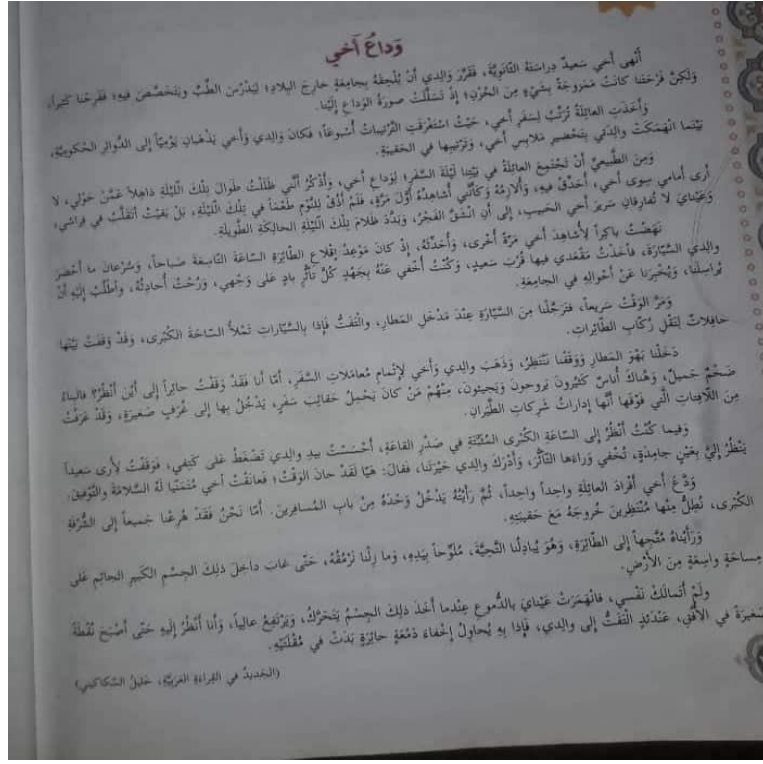 وَداعُ أَخي
أَنْهى أَخي سَعيدٌ دِراسَتَهُ الثّانَوِيَّةَ، فَقَرَّرَ والِدي أَنْ يُلْحِقَهُ بِجامِعَةٍ خارِجَ البِلادِ؛ لِيَدْرُسَ الطِّبَّ وَيَتَخَصَّصَ فيهِ؛ فَفَرِحْنا كَثيراً،
وَلكِنَّ فَرْحَتَنا كانَتْ مَمْزوجَةً بِشَيْءٍ مِنَ الحُزْنِ؛ إِذْ تَسَلَّلَتْ صورَةُ الوَداعِ إِلَيْنا.
وَأَخَذَتِ العائِلَةُ تُرَتِّبُ لِسَفَرِ أَخي، حَيْثُ اسْتَغْرَقَتِ التَّرْتيباتُ أُسْبوعاً؛ فَكانَ والِدي وَأَخي يَذْهَبانِ يَوْمِيّاً إِلى الدَّوائِرِ الحُكومِيَّةِ،
بَيْنَما انْهَمَكَتْ والِدَتي بِتَحْضيرِ مَلابِسِ أَخي، وَتَرْتيبِها في الحَقيبَةِ.
وَمِنَ الطَّبيعِيِّ أَنْ تَجْتَمِعَ العائِلَةُ في بَيْتِنا لَيْلَةَ السَّفَرِ؛ لِوَداعِ أَخي، وَأَذْكُرُ أَنَّني ظَلَلْتُ طَوالَ تِلْكَ اللَّيْلَةِ ذاهِلاً عَمَّنْ حَوْلي، لا
أَرى أَمامي سِوى أَخي، أُحَدِّقُ فيهِ، وَأُلازِمُهُ وَكَأَنَّني أُشاهِدُهُ أَوَّلَ مَرَّةٍ، فَلَمْ أَذُقْ لِلنَّوْمِ طَعْماً في تِلْكَ اللَّيْلَةِ، بَلْ بَقيتُ أَتَقَلَّبُ في فِراشي،
وَعَيْنايَ لا تُفارِقانِ سَريرَ أَخي الحَبيبِ، إِلى أَنِ انْشَقَّ الفَجْرُ، وَبَدَّدَ ظَلامَ تِلْكَ اللَّيْلَةِ الحالِكَةِ الطَّويلَةِ.
نَهَضْتُ باكِراً لِأُشاهِدَ أَخي مَرَّةً أُخْرى، وَأُحَدِّثَهُ، إِذْ كانَ مَوْعِدُ إِقْلاعِ الطّائِرَةِ السّاعَةَ التّاسِعَةَ صَباحاً، وَسُرْعانَ ما أَحْضَرَ
والِدي السَّيّارَةَ، فَأَخَذْتُ مَقْعَدي فيها قُرْبَ سَعيدٍ، وَكُنْتُ أُخْفي عَنْهُ بِجَهْدٍ كُلَّ تَأَثُّرٍ بادٍ عَلى وَجْهي، وَرُحْتُ أُحادِثُهُ، وَأَطْلُبُ إِلَيْهِ أَنْ
يُراسِلَنا، وَيُخْبِرَنا عَنْ أَحْوالِهِ في الجامِعَةِ.
وَمَرَّ الوَقْتُ سَريعاً، فَتَرَجَّلْنا مِنَ السَّيّارَةِ عِنْدَ مَدْخَلِ المَطارِ، والْتَفَتُّ فَإِذا بِالسَّيّاراتِ تَمْلَأُ السّاحَةَ الكُبْرى، وَقَدْ وَقَفَتْ بَيْنَها
حافِلاتٌ لِنَقْلِ رُكّابِ الطّائِراتِ.
دَخَلْنا بَهْوَ المَطارِ وَوَقَفْنا نَنْتَظِرُ، وَذَهَبَ والِدي وَأَخي لِإِتْمامِ مُعامَلاتِ السَّفَرِ، أَمّا أَنا فَقَدْ وَقَفْتُ حائِراً إِلى أَيْنَ أَنْظُرُ؟ فالبِناءُ
ضَخْمٌ جَميلٌ، وَهُناكَ أُناسٌ كَثيرونَ يَروحونَ وَيَجيئونَ، مِنْهُمْ مَنْ كانَ يَحْمِلُ حَقائِبَ سَفَرٍ، يَدْخُلُ بِها إِلى غُرَفٍ صَغيرَةٍ، وَقَدْ عَرَفْتُ
مِنَ اللّافِتاتِ الَّتي فَوْقَها أَنَّها إِداراتُ شَرِكاتِ الطَّيَرانِ.
وَفيما كُنْتُ أَنْظُرُ إِلى السّاعَةِ الكُبْرى المُثَبَّتَةِ في صَدْرِ القاعَةِ، أَحْسَسْتُ بِيَدِ والِدي تَضْغَطُ عَلى كَتِفي، فَوَقَفْتُ لِأَرى سَعيداً
يَنْظُرُ إِلَيَّ بِعَيْنٍ جامِدَةٍ، تُخْفي وَراءَها التَّأَثُّرَ، وَأَدْرَكَ والِدي حَيْرَتَنا، فَقالَ: هَيّا لَقَدْ حانَ الوَقْتُ؛ فَعانَقْتُ أَخي مُتَمَنِّياً لَهُ السَّلامَةَ والتَّوْفيقَ.
وَدَّعَ أَخي أَفْرادَ العائِلَةِ واحِداً واحِداً، ثُمَّ رَأَيْتُهُ يَدْخُلُ وَحْدَهُ مِنْ بابِ المُسافِرينَ. أَمّا نَحْنُ فَقَدْ هُرِعْنا جَميعاً إِلى الشُّرْفَةِ
الكُبْرى، نُطِلُّ مِنْها مُنْتَظِرينَ خُروجَهُ مَعَ حَقيبَتِهِ.
وَرَأَيْناهُ مُتَّجِهاً إِلى الطّائِرَةِ، وَهُوَ يُبادِلُنا التَّحِيَّةَ، مُلَوِّحاً بِيَدِهِ، وَما زِلْنا نَرْمُقُهُ، حَتّى غابَ داخِلَ ذلِكَ الجِسْمِ الكَبيرِ الجاثِمِ عَلى
مِساحَةٍ واسِعَةٍ مِنَ الأَرْضِ.
وَلَمْ أَتَمالَكْ نَفْسي، فانْهَمَرَتْ عَيْنايَ بِالدُّموعِ عِنْدما أَخَذَ ذلِكَ الجِسْمُ يَتَحَرَّكُ، وَيَرْتَفِعُ عالِياً، وَأَنا أَنْظُرُ إِلَيهِ حَتّى أَصْبَحَ نُقْطَةً
صَغيرَةً في الأُفُقِ، عِنْدَئِذٍ الْتَفَتُّ إِلى والِدي، فَإِذا بِهِ يُحاوِلُ إِخْفاءَ دَمْعَةٍ حائِرَةٍ بَدَتْ في مُقْلَتَيْهِ.
(الجَديدُ في القِراءَةِ العَرَبِيَّةِ، خَليلُ السَّكاكيني)